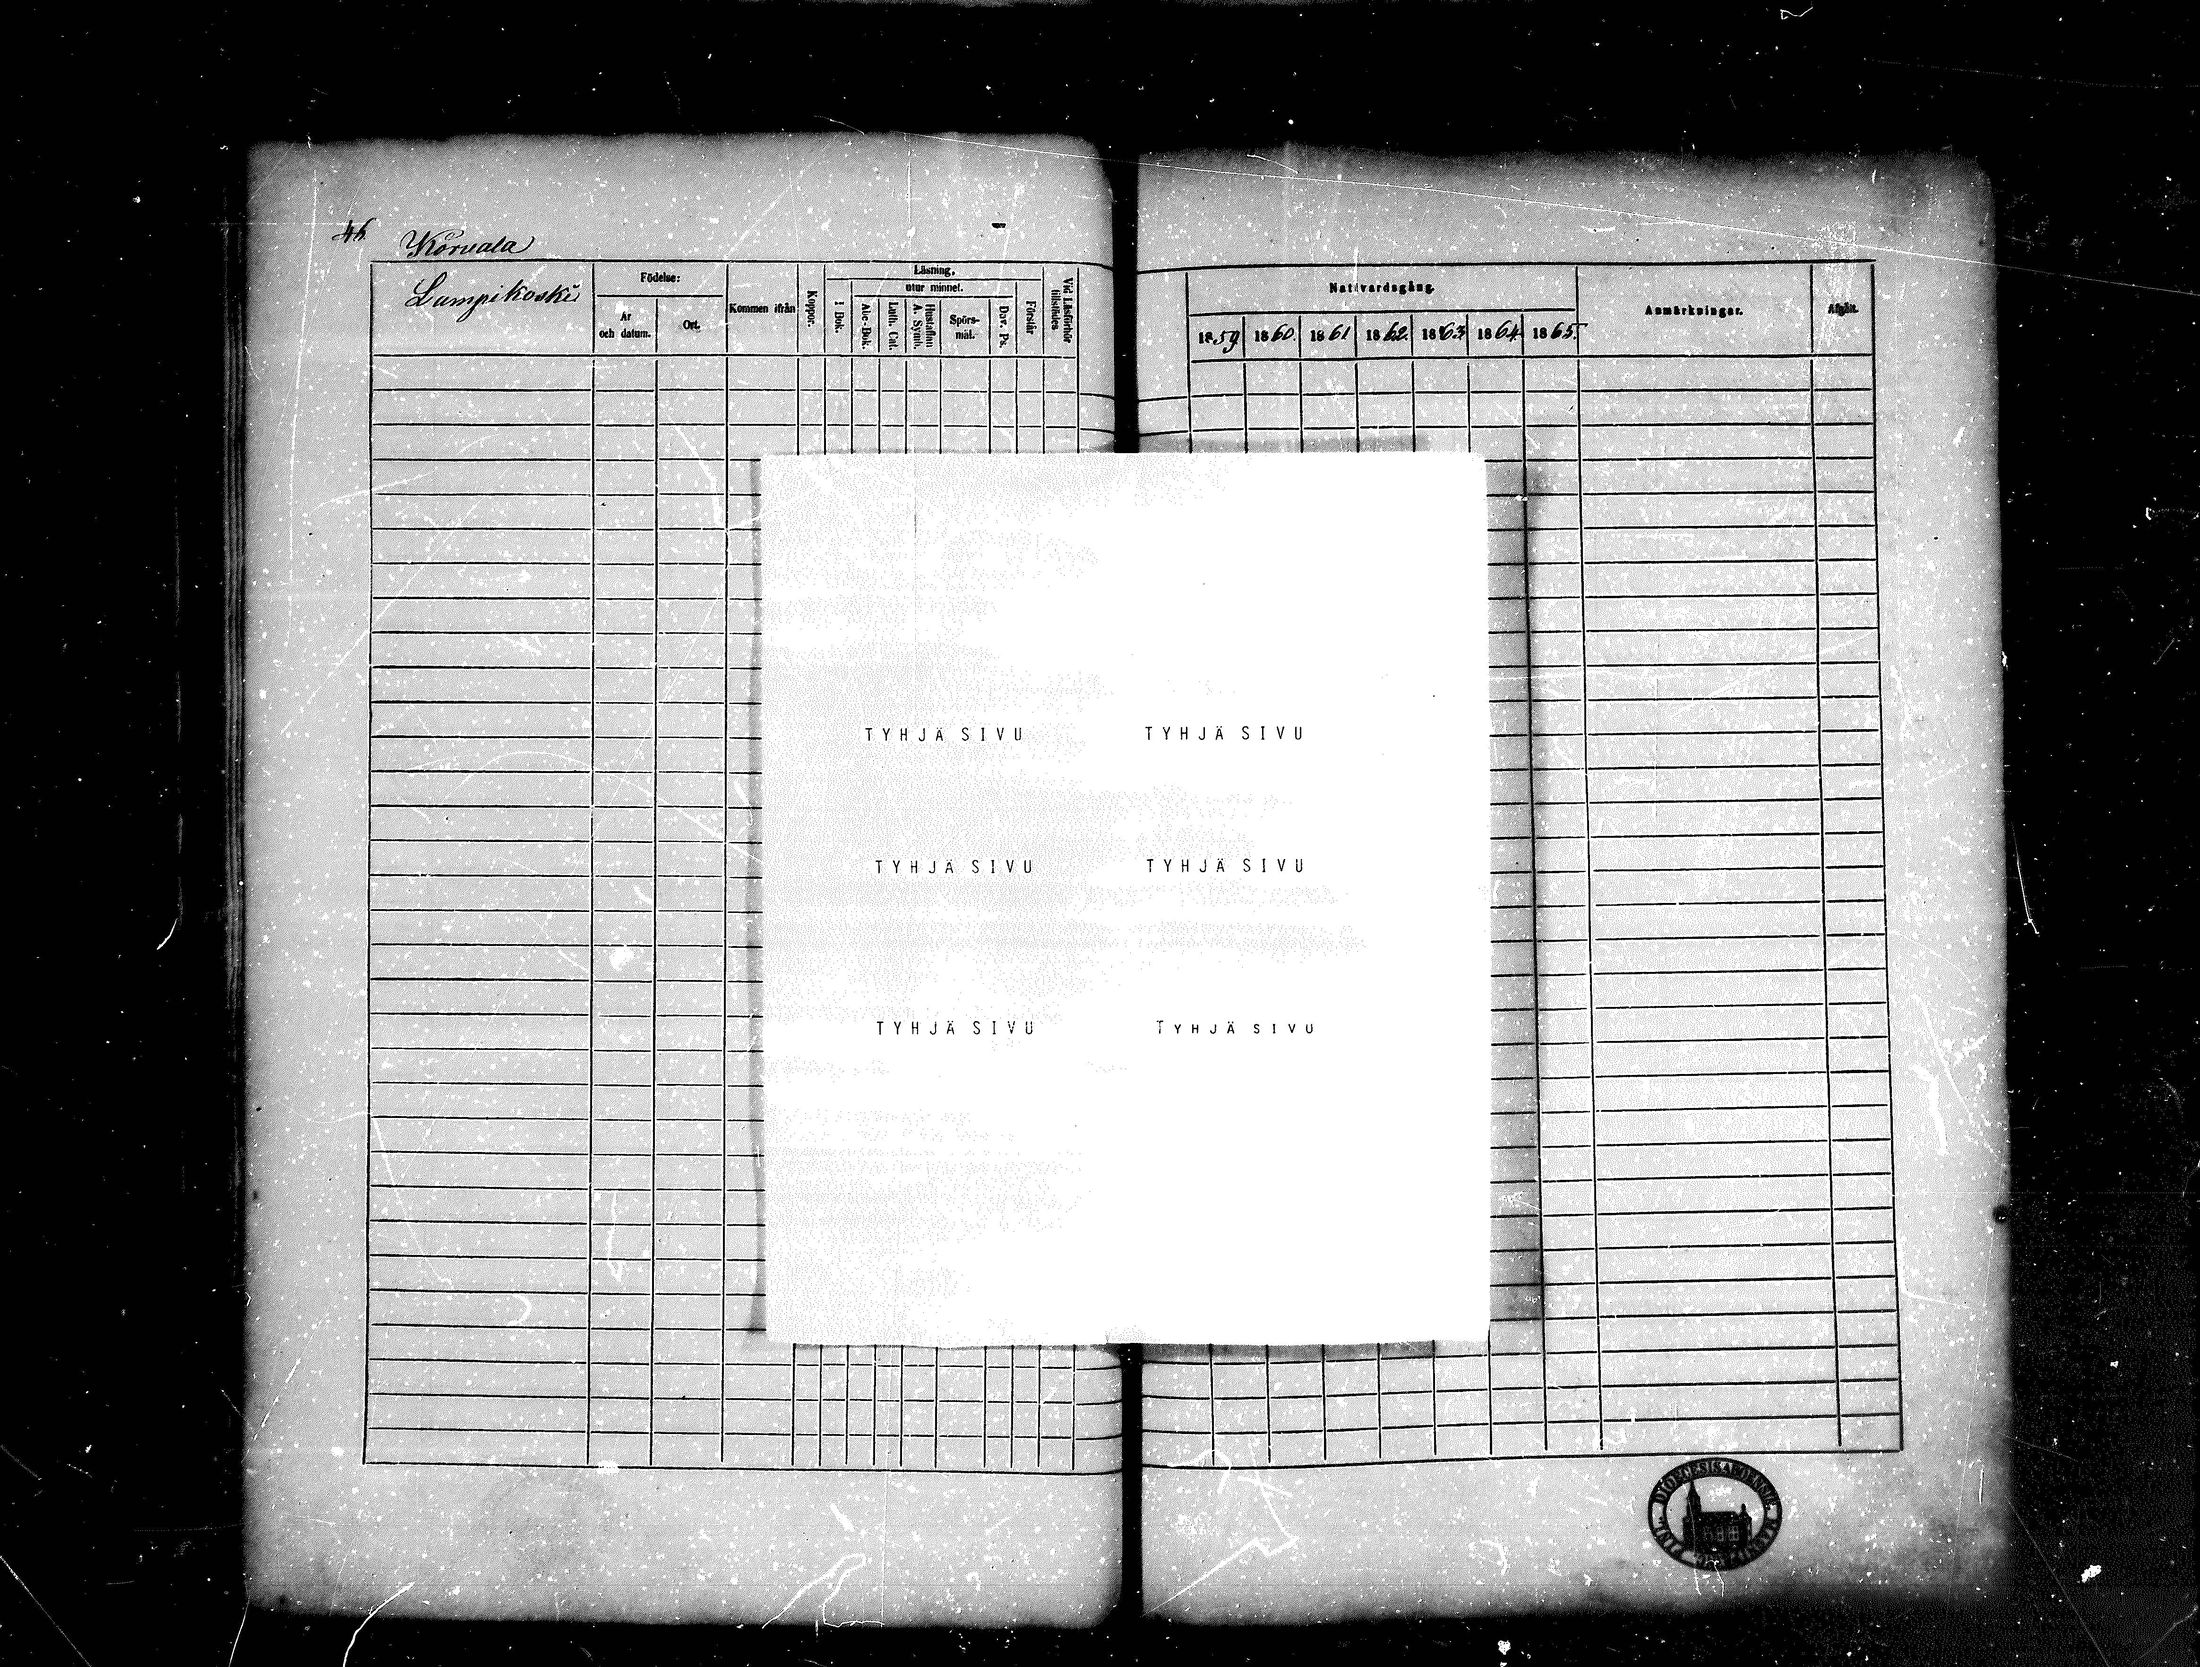 46
Korvala
Lampikoski
Födelse:
År
och datum.
Ort.
Kommen ifrån
Koppor.
Läsning,
utur minnet.
I Bok.
Abc-Bok.
Luth. Cat.
Hustaflan
A. Symb.
Spörs-
mål.
Dav. Ps.
Förstår
Vid Läsförhör
tillstädes
Nattvardsgång.
1859 1860. 1861 1862. 1863 1864 1865.
Anmärkningar.
Afgått.
TYHJÄ SIVU TYHJÄ SIVU
TYHJÄ SIVU TYHJÄ SIVU
TYHJÄ SIVU TYHJÄ SIVU